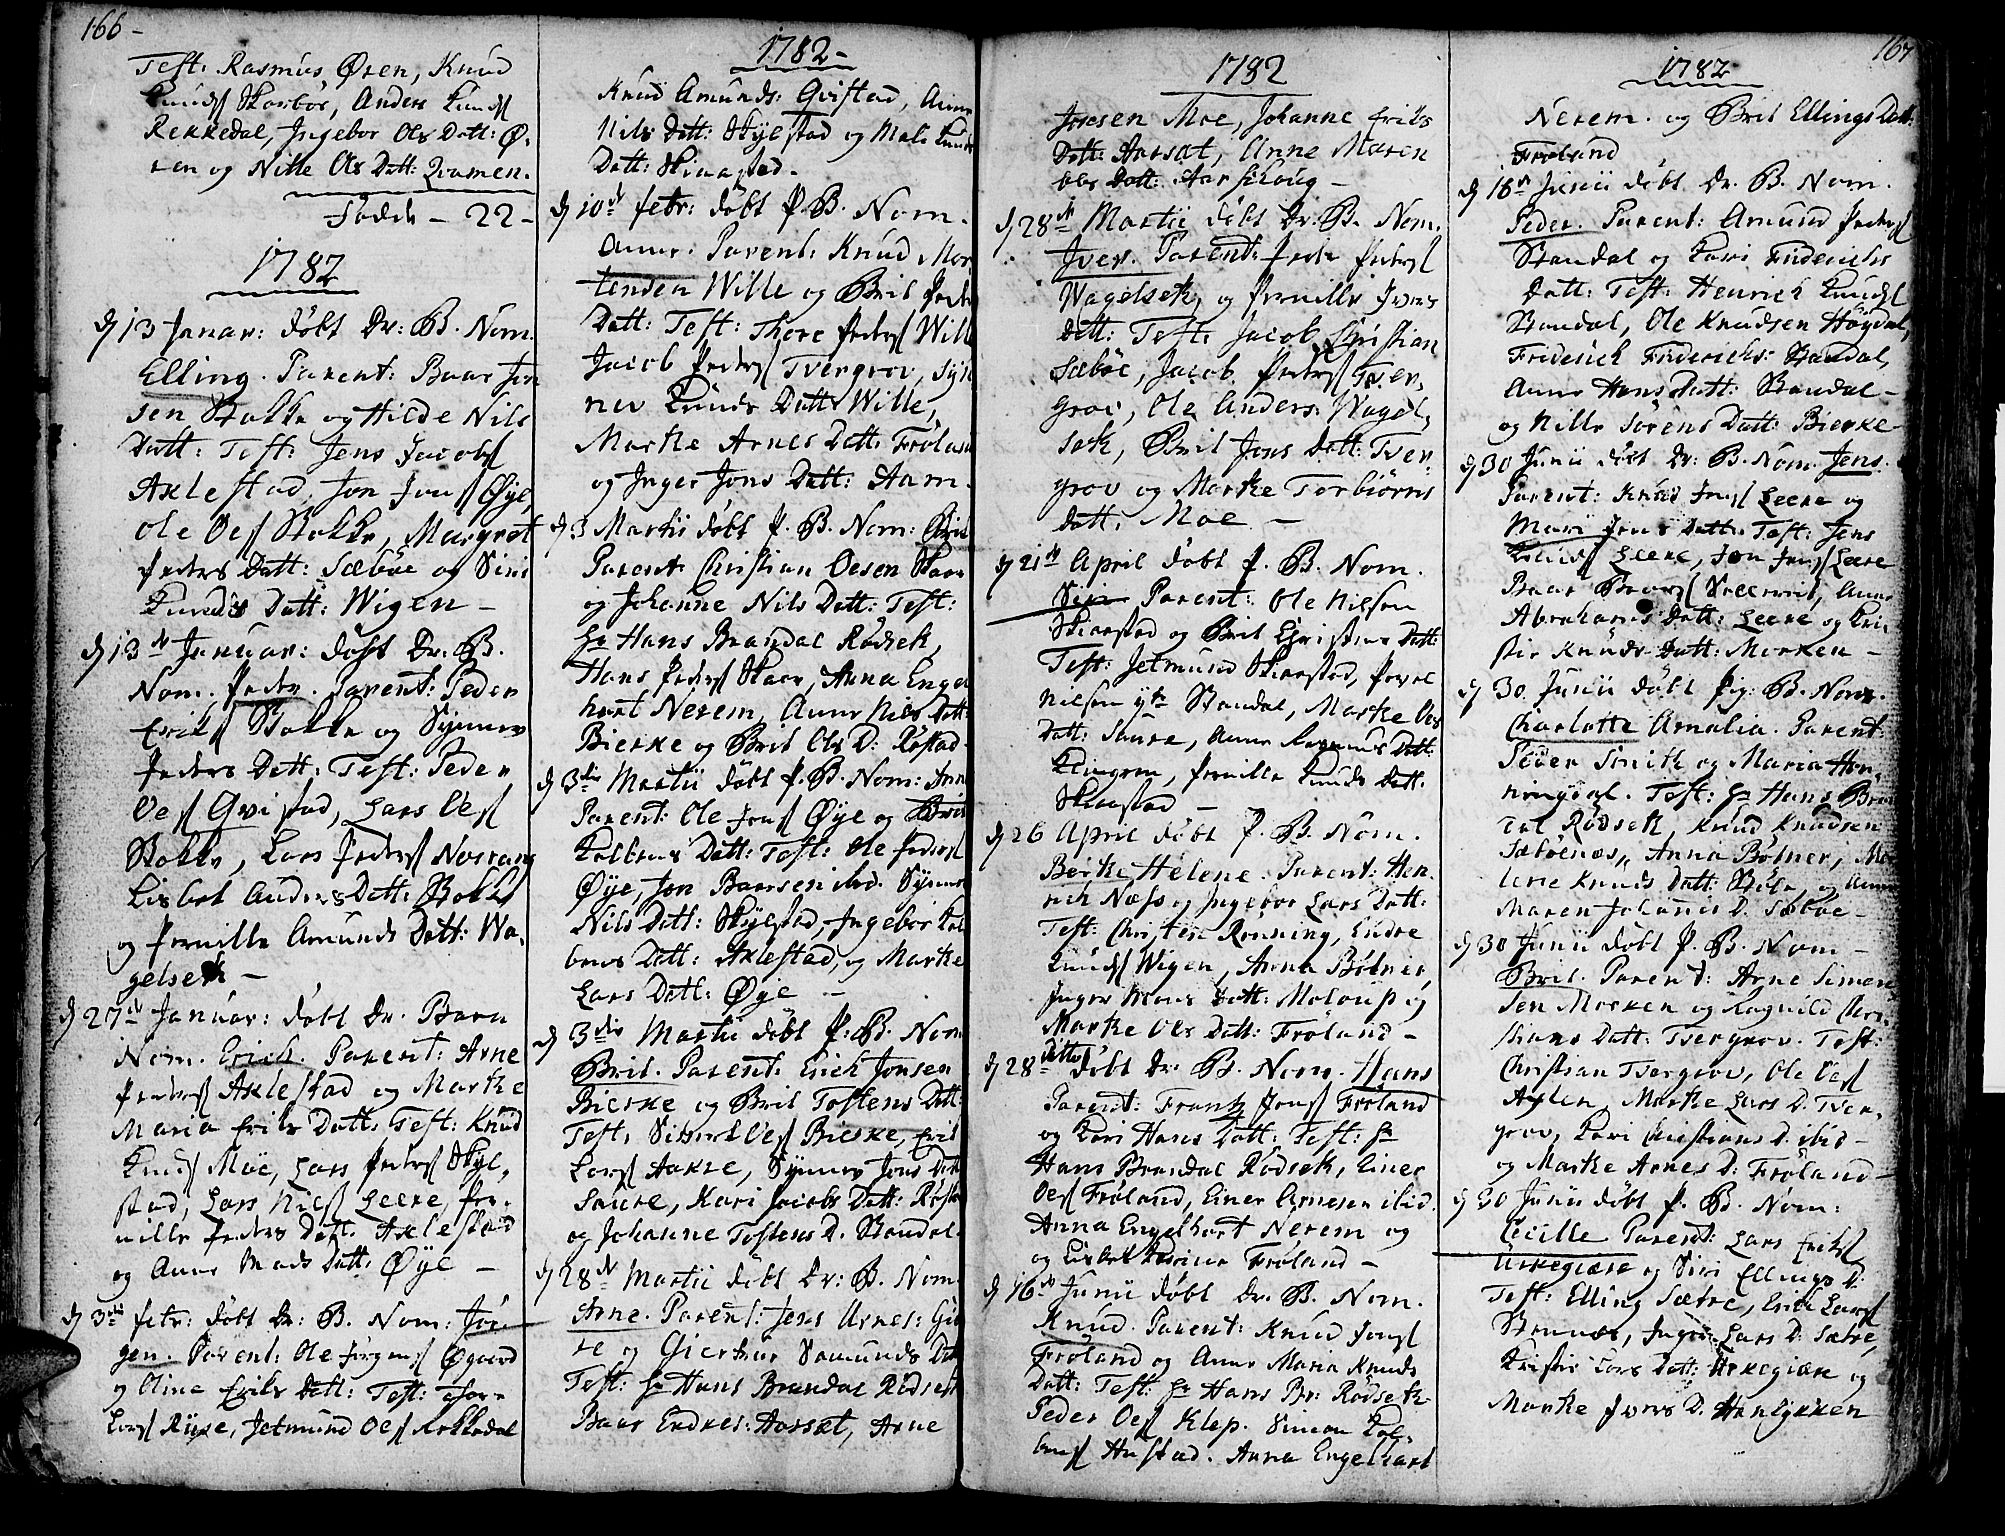 166-
Test: Rasmus Øren, Knud
Knuds Skorbøe, Anders Knuds
Rekkedal, Ingebor Ols Datt: Ø-
ren og Nille Ols Datt: Qvamen.
Fødde - 22-
1782
d 13 Januar: døbt Dr: B. Nom.
Elling. Parent: Baar Jon
sen Stokke og Hilde Nils
Datt: Test: Jens Jacobs
Axlestad, Jon Jons Øye,
Ole Oes Stokke, Margret
Peders Datt: Sæbøe og Siri
Knuds Datt: Wigen -
d 13de Januar: døbt Dr. B.
Nom. Peder. Parent: Peder
Eriks Stokke og Synnev
Peders Datt: Test: Peder
Oes Qvistad, Lars Oes
Stokke, Lars Peders Nosvang
Lisbet Anders Datt: Stokke
og Pernille Amunds Datt: Wa-
gelsek -
d 27de Januar: døbt Dr. Barn
Nom. Erich. Parent: Arne
Peders Axlestad og Marke
Maria Eriks Datt: Test: Knud
Knuds Moe, Lars Peders Skyl-
stad, Lars Nils Leere, Per-
nille Peders Datt: Axlestad
og Anne Mads Datt: Øye -
d 3die Febr: døbt Dr: B. Nom: Jør-
gen. Parent: Ole Jørgens Øgaard
og Oline Eriks Datt: Test:
Lars Ryse, Jetmund Oes Rekkedal
1782-
Knud Amunds: Qvistad, Anne
Nils Datt: Skylstad og Mali Knuds
Datt: Skraastad-
d 10de Febr: døbt P. B. Nom.
Anne. Parent: Knud Mor
tensen Wille og Brit Peders
Datt: Test: Thore Peders Wille
Jacob Peders Tvergrov, Syn
nev Knuds Datt: Wille,
Marke Arnes Datt: Frøland
og Inger Jons Datt: Aam.
d 3 Martii døbt P. B. Nom: Brit
Parent: Christian Oesen Skaar
og Johanne Nils Datt: Test:
Hr Hans Brandal Rødsek,
Hans Peders Skaar, Anna Engel
hart Nerem, Anne Nils Datt:
Bierke og Brit Ols D: Røstad-
d 3die Martii døbt P. B. Nom: Anne
Parent: Ole Jons Øye og Brit
Kolbens Datt: Test: Ole Peders
Øye, Jon Baarsen ibid. Synnev
Nils Datt: Skylstad, Ingebor Kol
bens Datt: Axlestad, og Marke
Lars Datt: Øye -
d 3die Martii døbt P. B. Nom
Brit. Parent: Erich Jonsen
Bierke og Brit Tostens Datt:
Test: Sivert Oes Bierke, Erik
Lars Aakre, Synnev Jons Datt
Saure, Kari Jacobs Datt: Røstad
og Johanne Tostens D. Standal-
d 28de Martii døbt Dr: B. Nom
Arne. Parent: Jens Arnes: Giø
re og Giertrur Samunds Datt
Test: Hr Hans Brandal Rødsek
Baar Endres: Aarsæt, Arne
1782
Joesen Moe, Johanne Eriks
Datt: Aarsæt, Anne Maren
Ols Datt: Aarskoug -
d 28de Martii døbt Dr: B. Nom.
Iver. Parent: Peder Peders
Wagelsek, og Pernille Ivers
Datt: Test: Jacob Christian
Sæbøe, Jacob Peders Tver-
grov, Ole Anders: Wagel-
sek, Brit Jons Datt: Tver-
grov og Marke Torbiørns
Datt: Moe -
d 21de April døbt P. B. Nom.
Siri Parent: Ole Nilsen
Skraastad og Brit Christens Datt:
Test: Jetmund Skraastad, Povel
Nilsen yt: Standal, Marke Oes
Datt: Saure, Anne Rasmus Datt:
Klungren, Pernille Knuds Datt:
Skraastad -
d 26 April døbt P. B. Nom.
Berte Helene. Parent: Hen-
rich Næss og Ingebor Lars Datt:
Test: Christen Rønning, Endre
Knuds Wigen, Anna Bølner,
Inger Mons Datt: Moloup og
Marke Ols Datt: Frøland -
d 28de ditto døbt Dr: B. Nom. Hans
Parent: Frantz Jons Frøland
og Kari Hans Datt: Test: Hr
Hans Brandal Rødsek, Einer
Oes Frøland, Einer Arnesen ibid.
Anna Engelhart Nerem og
og Lisbet Frøland -
d 16de Junii døbt Dr. B. Nom.
Knud. Parent: Knud Jons
Frøland og Anne Maria Knuds
Datt: Test: Hr Hans Br: Rødsek-
Peder Oes Klep. Simon Kol-
bens Hustad. Anna Engelhart
167
1782
Nerem. og Brit Ellings Datt:
Frøland
d 16de Junii døbt Dr. B. Nom.
Peder. Parent: Amund Peders
Standal og Kari Friderichs
Datt: Test: Henrich Knuds
Standal, Ole Knudsen Høydal,
Friderich Friderichs: Standal,
Anne Hans Datt: Standal-
og Nille Sørens Datt: Bierke
d 30 Junii døbt Dr: B. Nom. Jens.
Parent: Knud Jens Leere og
Mari Jens Datt: Test: Jens
Knuds Leere, Jon Jens Leere
Baar Baars, Anne
Abrahams Datt: Leere og Kri-
stie Knuds Datt: Morken -
d 30. Junii døbt Pig: B. Nom.
Charlotte Amalia. Parent:
Peder Smith og Maria Hen-
ningdal. Test: Hr Hans Bran
dal Rødsek, Knud Knudsen
Sæboenæs, Anna Bølner, Ma
lene Knuds Datt: Støle, og Anne
Maren Johannis D. Sæbøe-
d 30 Junii døbt P. B. Nom -
Brit. Parent: Arne Simen
sen Morken og Ragnild Chri-
stians Datt: Tvergrov. Test:
Christian Tvergrov, Ole Oes
Axlen, Marke Lars D. Tver-
grov, Kari Christians D. ibid-
og Marke Arnes D. Frøland-
d 30 Junii døbt P. B. Nom:
Cecille Parent: Lars Eriks
Urkegiære og Siri Ellings D.
Test: Elling Sætre, Erik Lars
Stennes, Inger Lars D: Sætre,
Kristie Lars Datt: Urkegiære og
Marke Ivers D. Hanlykken